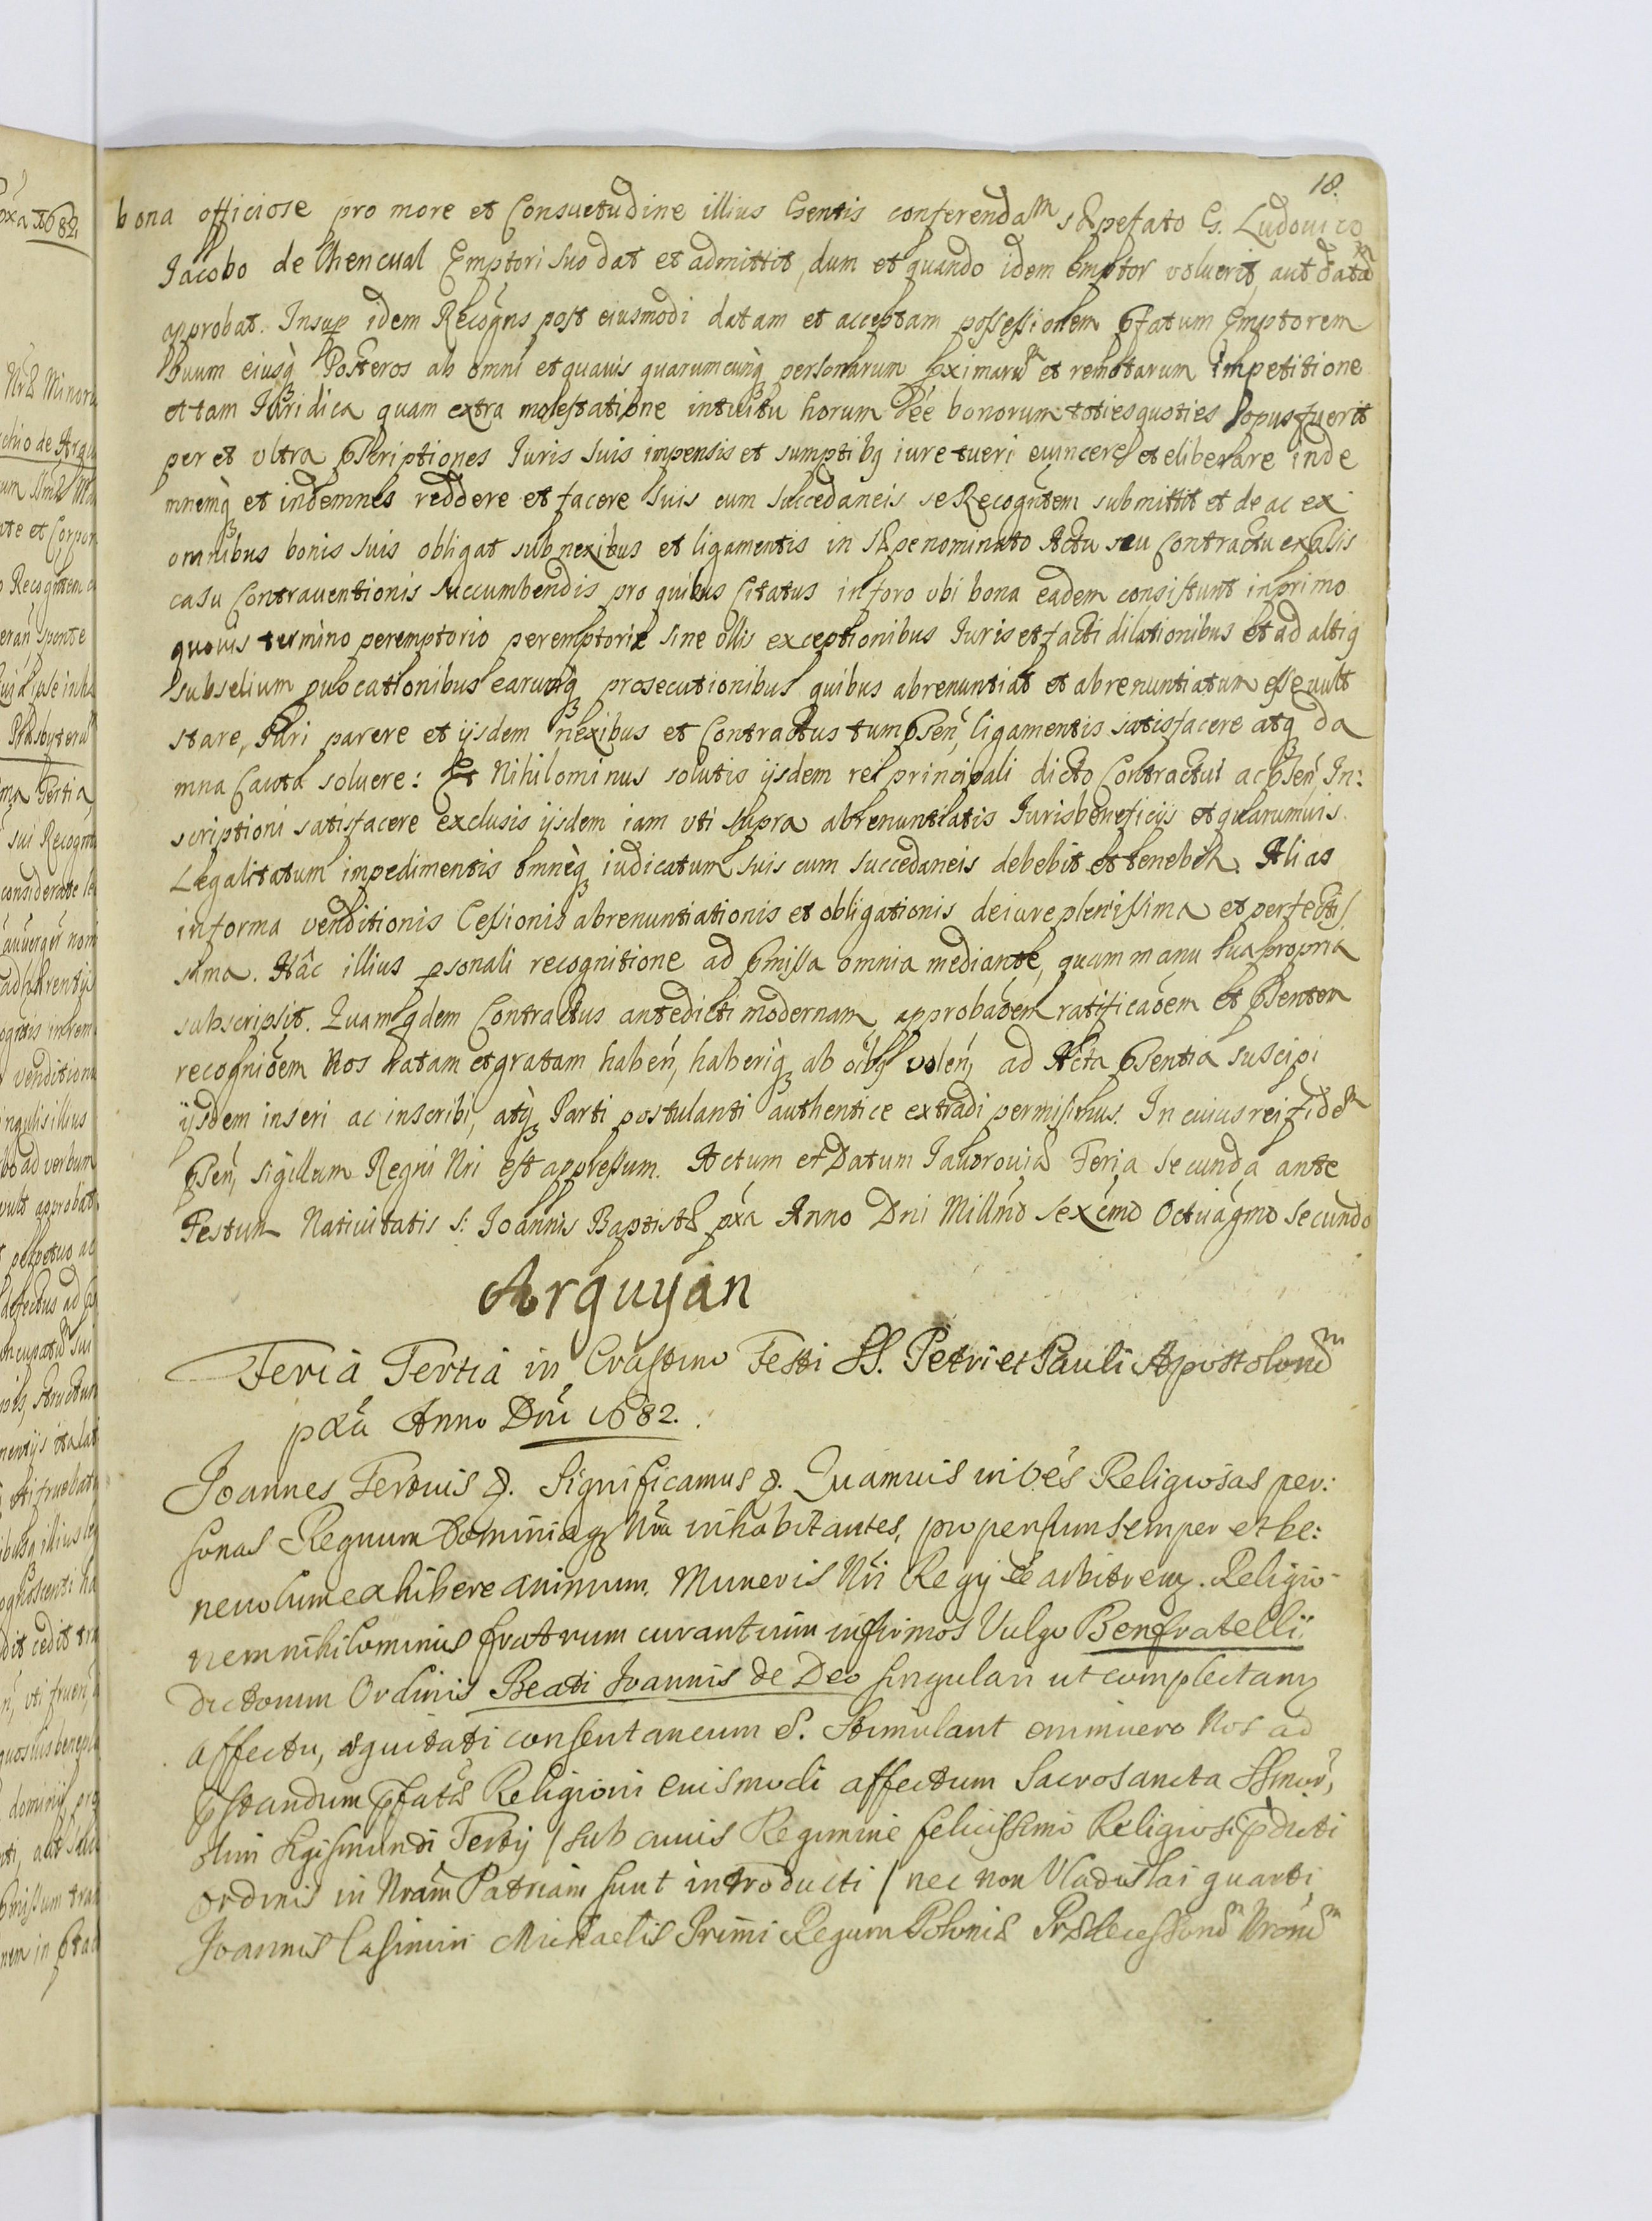 18.
bona officiose pro more et Consuetudine illius Gentis conferendam sæpefato G. Ludouico
Jacobo de Chencual Emptori suo dat et admittit, dum et quando idem emptor voluerit, aut datam
approbat. Insup idem Recogns post eiusmodi datam et acceptam possessionem pfatum Emptorem
suum eiusq Posteros ab omni et quauis quarumcunq personarum pximarum et remotarum impetitione
et tam Juridica quam extra molestatione intuitu horum bonorum toties quoties opus fuerit
per et vltra pscriptiones Juris suis impensis et sumptibq iure tueri euincere et eliberare inde
mnemq et indemnes reddere et facere suis cum succedaneis se Recogntem submittit et de ac ex
omnibus bonis suis obligat sub nexibus et ligamentis in sæpenominato Actu seu Contractu
casu Contrauentionis succumbendis pro quibus Citatus in foro vbi bona eadem consistunt in primo
quouis termino peremptorio peremptorie sine ollis exceptionibus Juris et facti dilationibus et ad altiq
subselium puocationibus earumq prosecutionibus quibus abrenuntiat et abrenuntiatum esse vult
stare, Juri parere et ijsdem nexibus et Contractus tum psen, ligamentis satisfacere atq da
mna Cauta soluere: Et Nihilominus solutis ijsdem rei principali dicto Contractui ac psen, In:
scriptioni satisfacere exclusis ijsdem iam vti supra abrenuntiatis Juris beneficijs et quarumuis
Legalitatum impedimentis omneq iudicatum suis cum succedaneis debebit et tenebit. Alias
in forma venditionis Cessionis abrenuntiationis et obligationis de iure plenissima et perfectis
sima. Hâc illius psonali recognitione ad pmissa omnia mediante, quam manu sua propria
subscripsit. Quam qdem Contractus antedicti modernam approbaoem ratificaoem et psentem
recognioem Nos ratam et gratam haben, haberiq ab oibq volen, ad Acta psentia suscipi
ijsdem inseri ac inscribi, atq Parti postulanti authentice extradi permisimus. In cuius rei fidem
psen, sigillum Regni Nri est appressum. Actum et Datum Jauorouiæ Feria secunda ante
Festum Natiuitatis S: Joannis Baptistæ pxa Anno Dni Millmo sexcmo Octuagmo secundo
Arquyan
Feriâ Tertiâ in Crastino Festi SS. Petri et Pauli Apostolorum
pxâ Anno Dni 1682.
Joannes Tertius &. Significamus &. Quamuis in oes Religiosas per:
sonas Regnum Dominiaq Nra inhabitantes, propensum semper et be:
neuolum exhibere animum. Muneris Nri Regij ee arbitremq. Religio-
nem nihilominus fratrum curantium infirmos Vulgo Benfratelli
dictorum Ordinis Beati Joannis de Deo singulari ut complectamq
affectu, æquitati consentaneum e. Stimulant enimuero Nos ad
pstandum pfatæ Religioni euismodi affectum Sacrosancta SSmor,
olim Sigismundi Tertij / sub cuius Regimine felicissimo Religiosi pdicti
Ordinis in Nram Patriam sunt introducti / nec non Vladislai quarti
Joannis Casimiri Michaelis Primi Regum Poloniæ Prædecessorum Nrorum